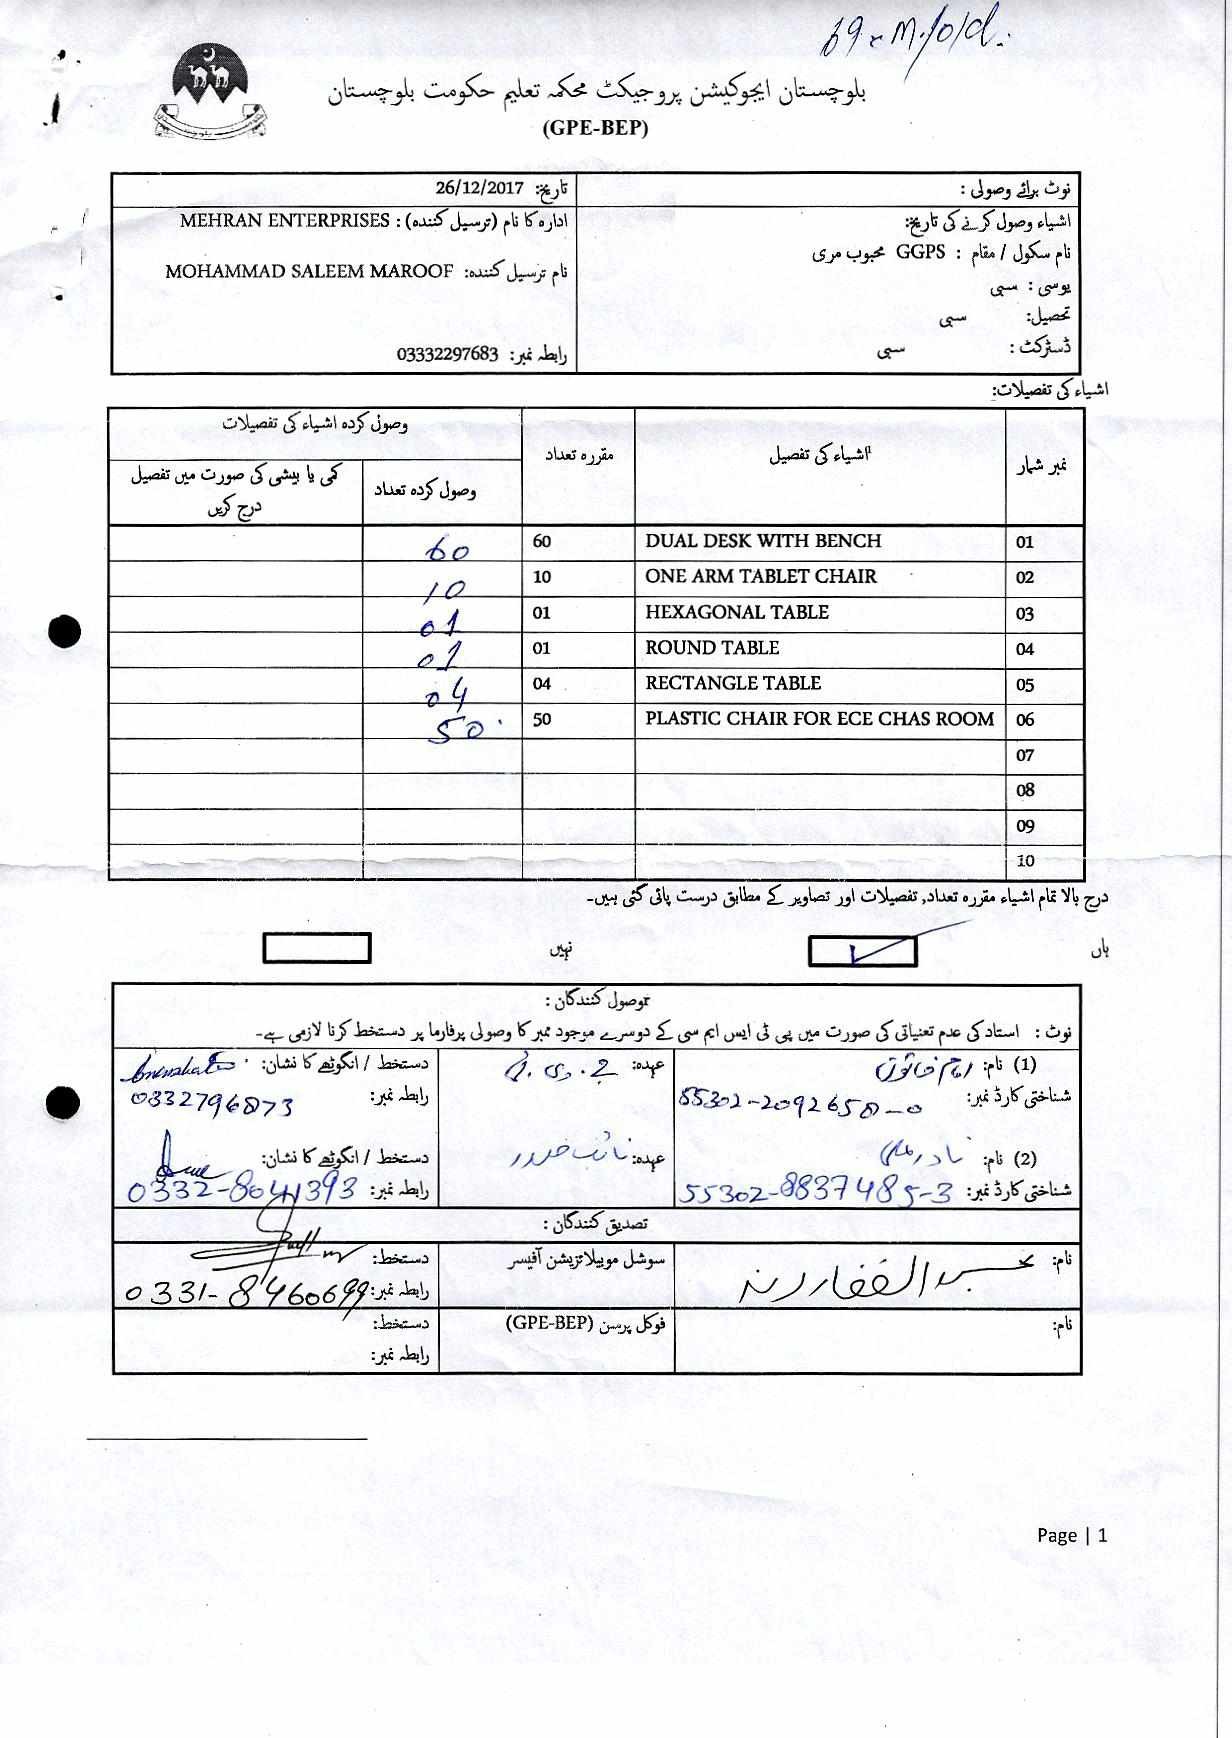 بلوچستان ایجوکیشن پروجیکٹ محکمہ تعلیم حکومت بلوچستان
(GPE-BEP)
نوٹ برائے وصولی :
تاریخ: 26/12/2017
اشیاء وصول کرنے کی تاریخ:
نام سکول / مقام : GGPS محبوب مری
یوسی : سبی
تحصیل: سبی
ڈسٹرکٹ : سبی
ادارہ کا نام (ترسیل کنندہ) : MEHRAN ENTERPRISES
نام ترسیل کنندہ: MOHAMMAD SALEEM MAROOF
رابطہ نمبر: 03332297683
اشیاء کی تفصیلات:
نمبر شمار اشیاء کی تفصیل مقررہ تعداد وصول کردہ اشیاء کی تفصیلات
وصول کردہ تعداد کمی یا بیشی کی صورت میں تفصیل درج کریں
01 DUAL DESK WITH BENCH 60 60
02 ONE ARM TABLET CHAIR 10 10
03 HEXAGONAL TABLE 01 01
04 ROUND TABLE 01 01
05 RECTANGLE TABLE 04 04
06 PLASTIC CHAIR FOR ECE CHAS ROOM 50 50
07
08
09
10
درج بالا تمام اشیاء مقررہ تعداد, تفصیلات اور تصاویر کے مطابق درست پائی گئی ہیں۔
ہاں ✓ نہیں
توصول کنندگان :
نوٹ : استاد کی عدم تعنیاتی کی صورت میں پی ٹی ایس ایم سی کے دوسرے موجود ممبر کا وصولی پرفارما پر دستخط کرنا لازمی ہے۔
(1) نام: عہدہ: جے۔وی۔ٹی دستخط / انگوٹھے کا نشان:
شناختی کارڈ نمبر: 55302-2092650-0 رابطہ نمبر: 0332796873
(2) نام: عہدہ: نائب صدر دستخط / انگوٹھے کا نشان:
شناختی کارڈ نمبر: 55302-8837485-3 رابطہ نمبر: 0332-8041393
تصدیق کنندگان :
نام: عبدالغفار رند سوشل موبیلائزیشن آفیسر دستخط:
رابطہ نمبر: 0331-8460699
نام: فوکل پرسن (GPE-BEP) دستخط:
رابطہ نمبر:
Page | 1